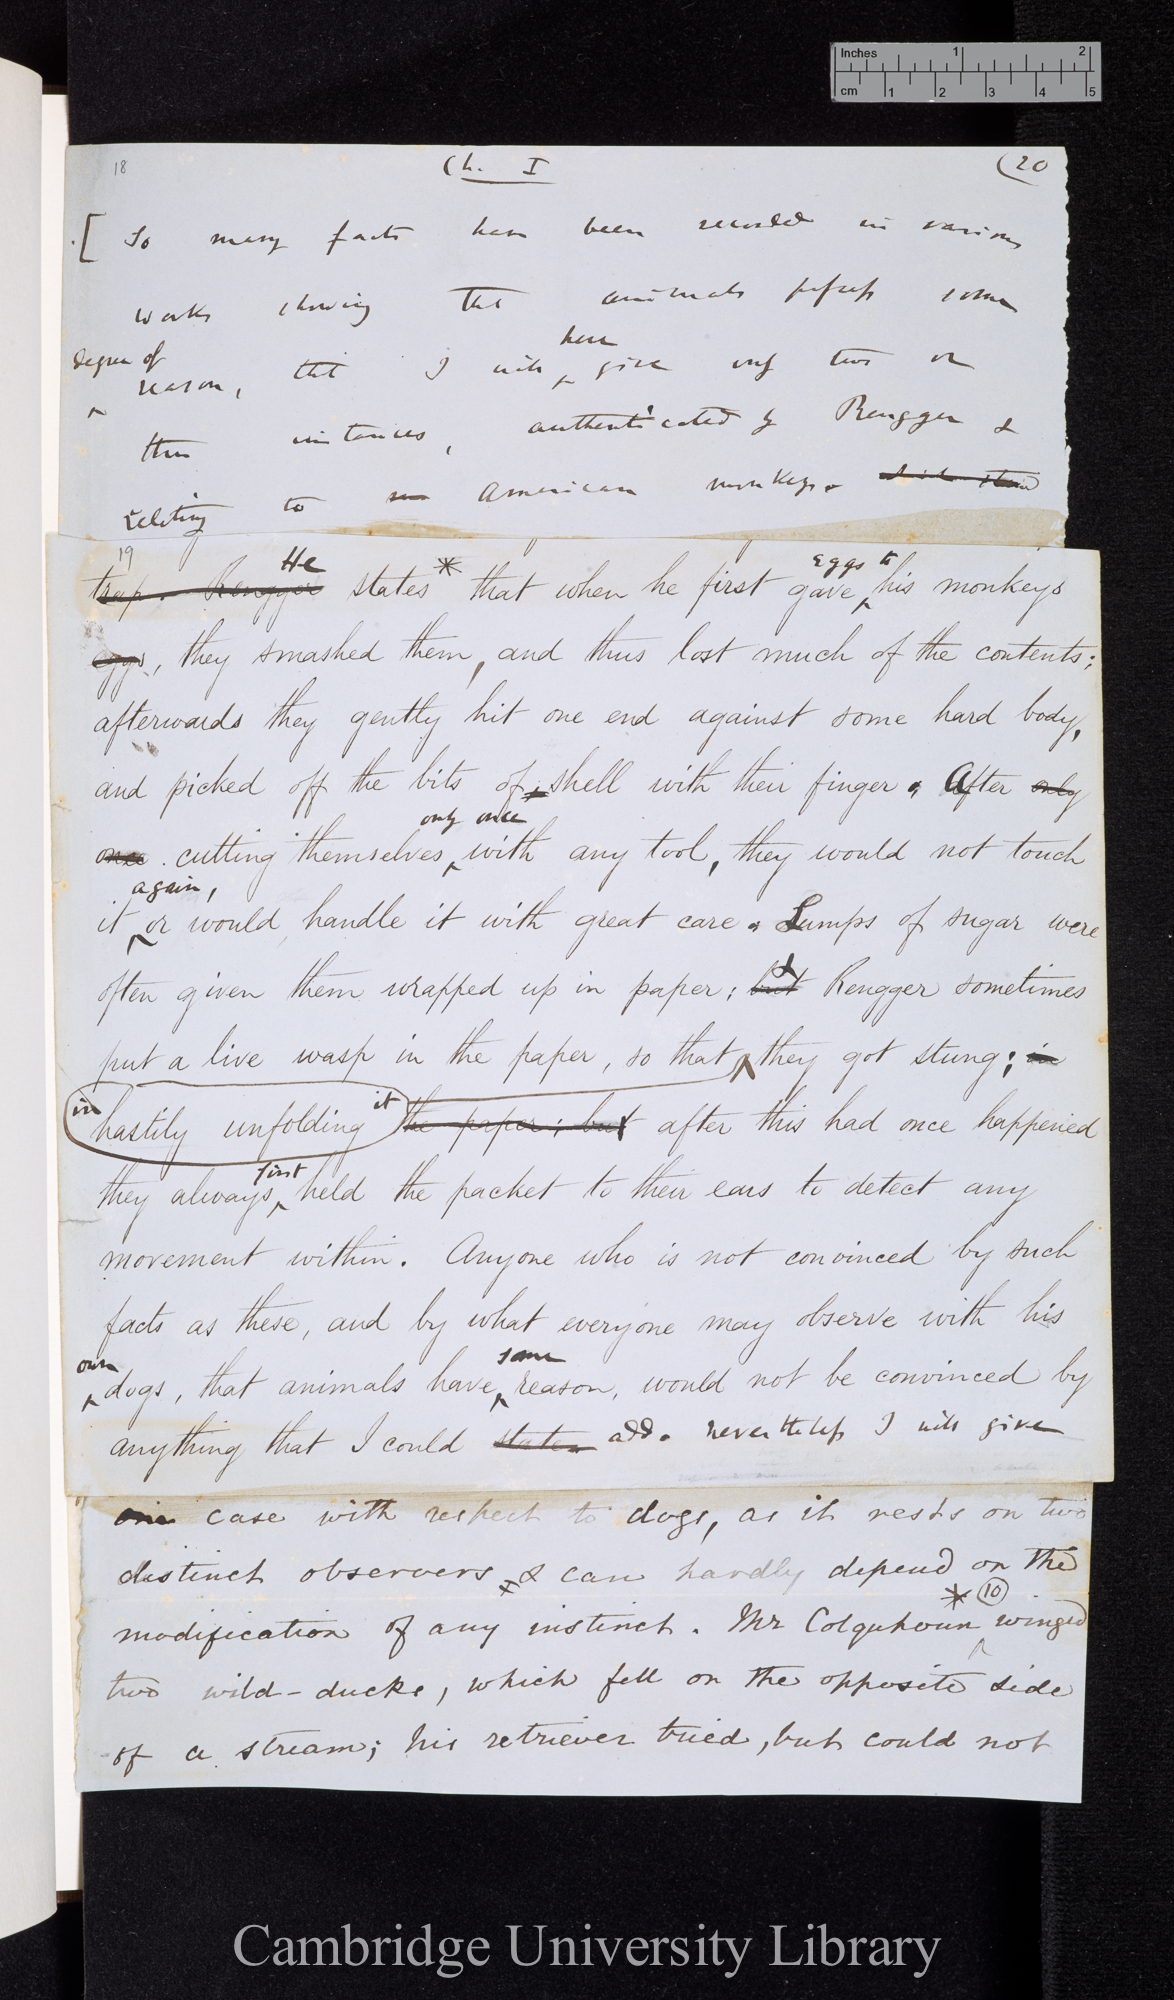 Inches 1 2
cm 1 2 3 4 5
18 Ch. I (20
[ So many facts have been recorded in various
works showing that animals possess some
degree of here
reason, that I will give only two or
three instances, authenticated by Rengger &
relating to American monkeys. which stand
19 He eggs to
trap. Rengger states * that when he first gave his monkeys
eggs, they smashed them, and thus lost much of the contents;
afterwards they gently hit one end against some hard body,
and picked off the bits of shell with their finger. After only
only once
once cutting themselves with any tool, they would not touch
again,
it or would handle it with great care. Lumps of sugar were
often given them wrapped up in paper; but & Rengger sometimes
put a live wasp in the paper, so that they got stung; in
in hastily unfolding it the paper; but after this had once happened
first
they always held the packet to their ears to detect any
movement within. Anyone who is not convinced by such
facts as these, and by what everyone may observe with his
own some
dogs, that animals have reason, would not be convinced by
anything that I could state. add. nevertheless I will give
one case with respect to dogs, as it rests on two
distinct observers, & can hardly depend on the
* 10
modification of any instinct. Mr Colquhoun winged
two wild-ducks, which fell on the opposite side
of a stream; his retriever tried, but could not
Cambridge University Library